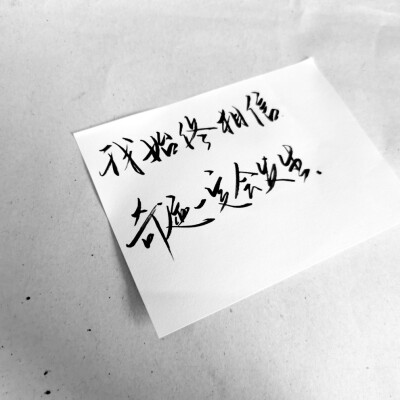 我始终相信
奇迹一定会发生.